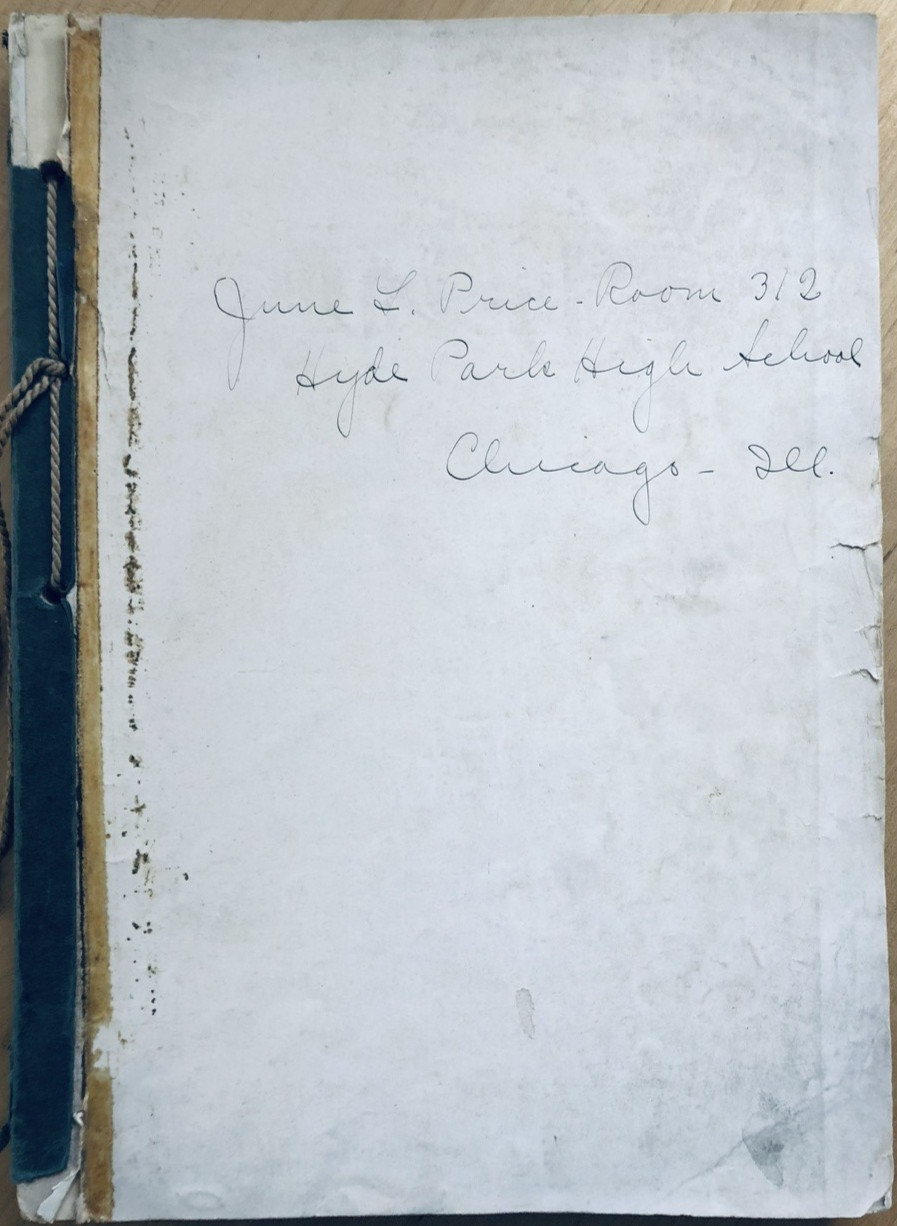 June L. Price - Room 312
Hyde Park High School
Chicago - Ill.